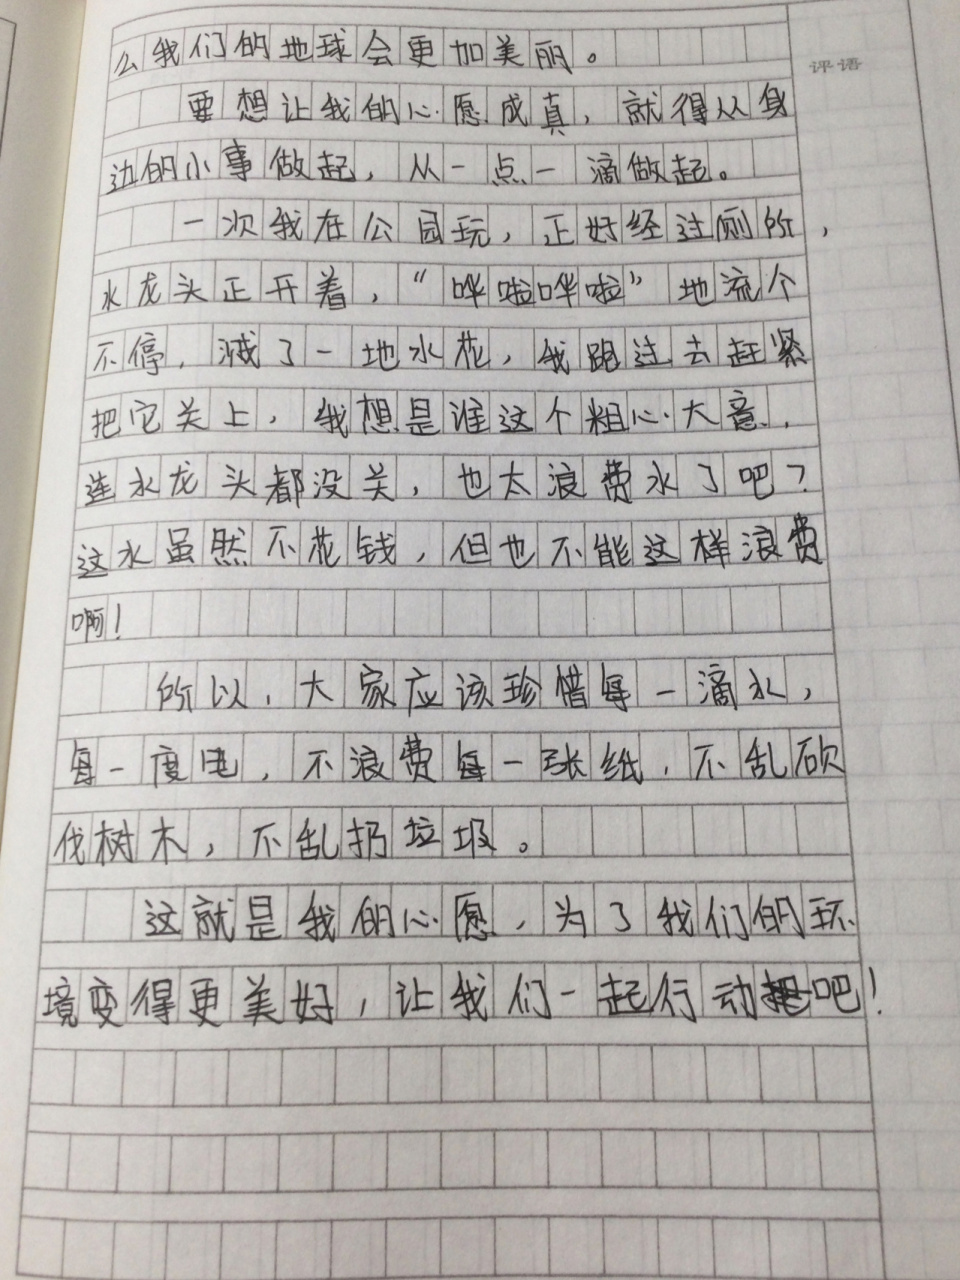 么我们的地球会更加美丽。
评语
要想让我的心愿成真，就得从身
边的小事做起，从一点一滴做起。
一次我在公园玩，正好经过厕所，
水龙头正开着，“哗啦哗啦”地流个
不停，溅了一地水花，我跑过去赶紧
把它关上，我想是谁这个粗心大意，
连水龙头都没关，也太浪费水了吧？
这水虽然不花钱，但也不能这样浪费
啊！
所以，大家应该珍惜每一滴水，
每一度电，不浪费每一张纸，不乱砍
伐树木，不乱扔垃圾。
这就是我的心愿，为了我们的环
境变得更美好，让我们一起行动吧！